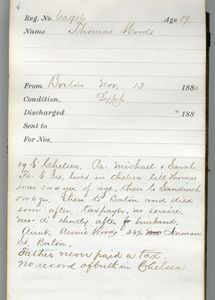 Reg. No. 60.916 Age 19
Name Thomas Woods
From Boston Nov. 13 1880
Condition,
Discharged " 188
Sent to
For Nos.
19 E Chelsea, Pa. Michael & Sarah,
Pa. & Ire. lives in Chelsea till Thomas
was 2 yr of age, then to Sandwich
then to Boston and died
soon after, taxpayer, no service,
mo. d. shortly after husband,
Aunt, Annie Woods 26 Norman
St. Boston.
Father never paid a tax.
No record of birth in Chelsea